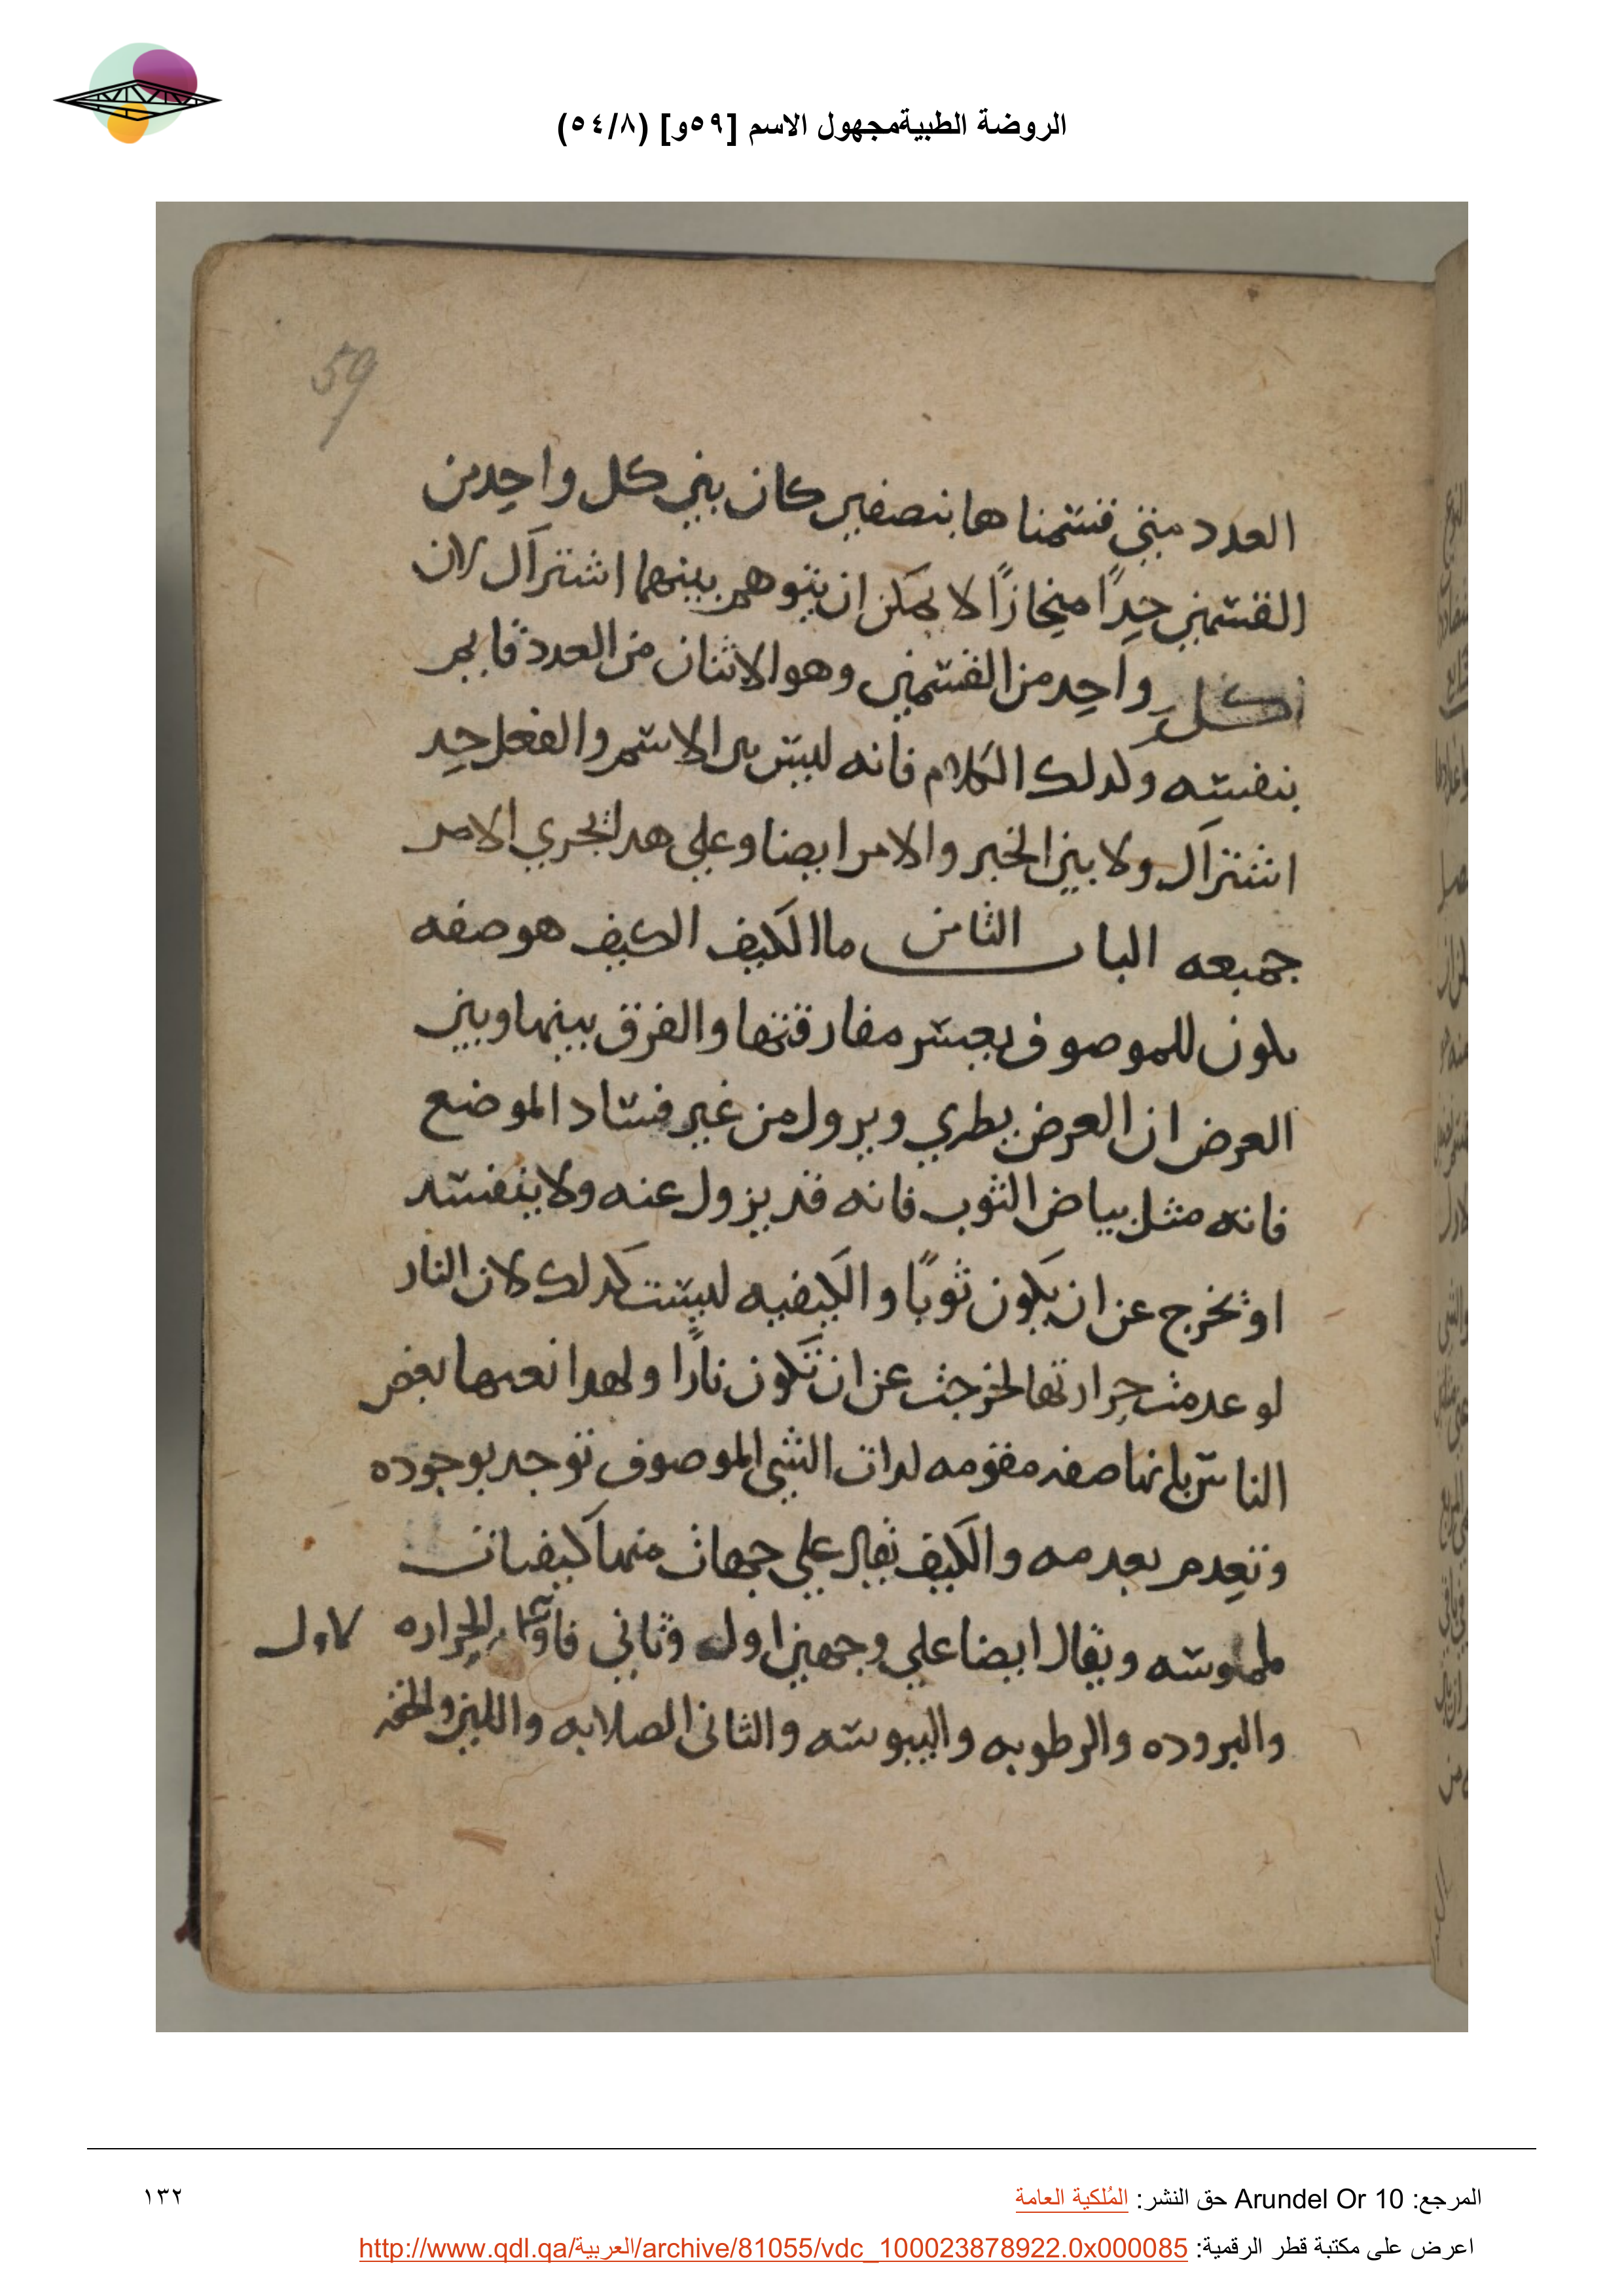 الروضة الطبيةمجهول الاسم [٥٩و] (٥٤/٨)
59
العدد متي قسمناها بنصفين كان بين كل واحد من
القسمين حدًا منحازًا لا يمكن ان يتوهم بينهما اشتراك لان
كل واحد من القسمين وهو الاثنان من العدد قايم
بنفسه ولدلك الكلام فانه ليس بين الاسم والفعل حد
اشتراك ولا بين الخبر والامر ايضا وعلي هدا يجري الامر
جميعه الباب الثامن ما الكيف الكيف هو صفه
يكون للموصوف يعسر مفارقتها والفرق بينها وبين
العرض ان العرض يطري ويزول من غير فساد الموضع
فانه مثل بياض الثوب فانه قد يزول عنه ولا ينفسد
او يخرج عن ان يكون ثوبًا والكيفيه ليست كدلك لان النار
لو عدمت حرارتها لخرجت عن ان تكون نارًا ولهدا نعتها بعض
الناس بانها صفه مقومه لدات الشي الموصوف توجد بوجوده
وتعدم بعدمه والكيف يقال علي جهات منها كيفيات
ملموسه ويقال ايضا علي وجهين اول وثاني الحراره لاول
والبروده والرطوبه واليبوسه والثاني الصلابه واللين والخفه
المرجع: Arundel Or 10 حق النشر: المُلكية العامة
١٣٢
اعرض على مكتبة قطر الرقمية: http://www.qdl.qa/العربية/archive/81055/vdc_100023878922.0x000085